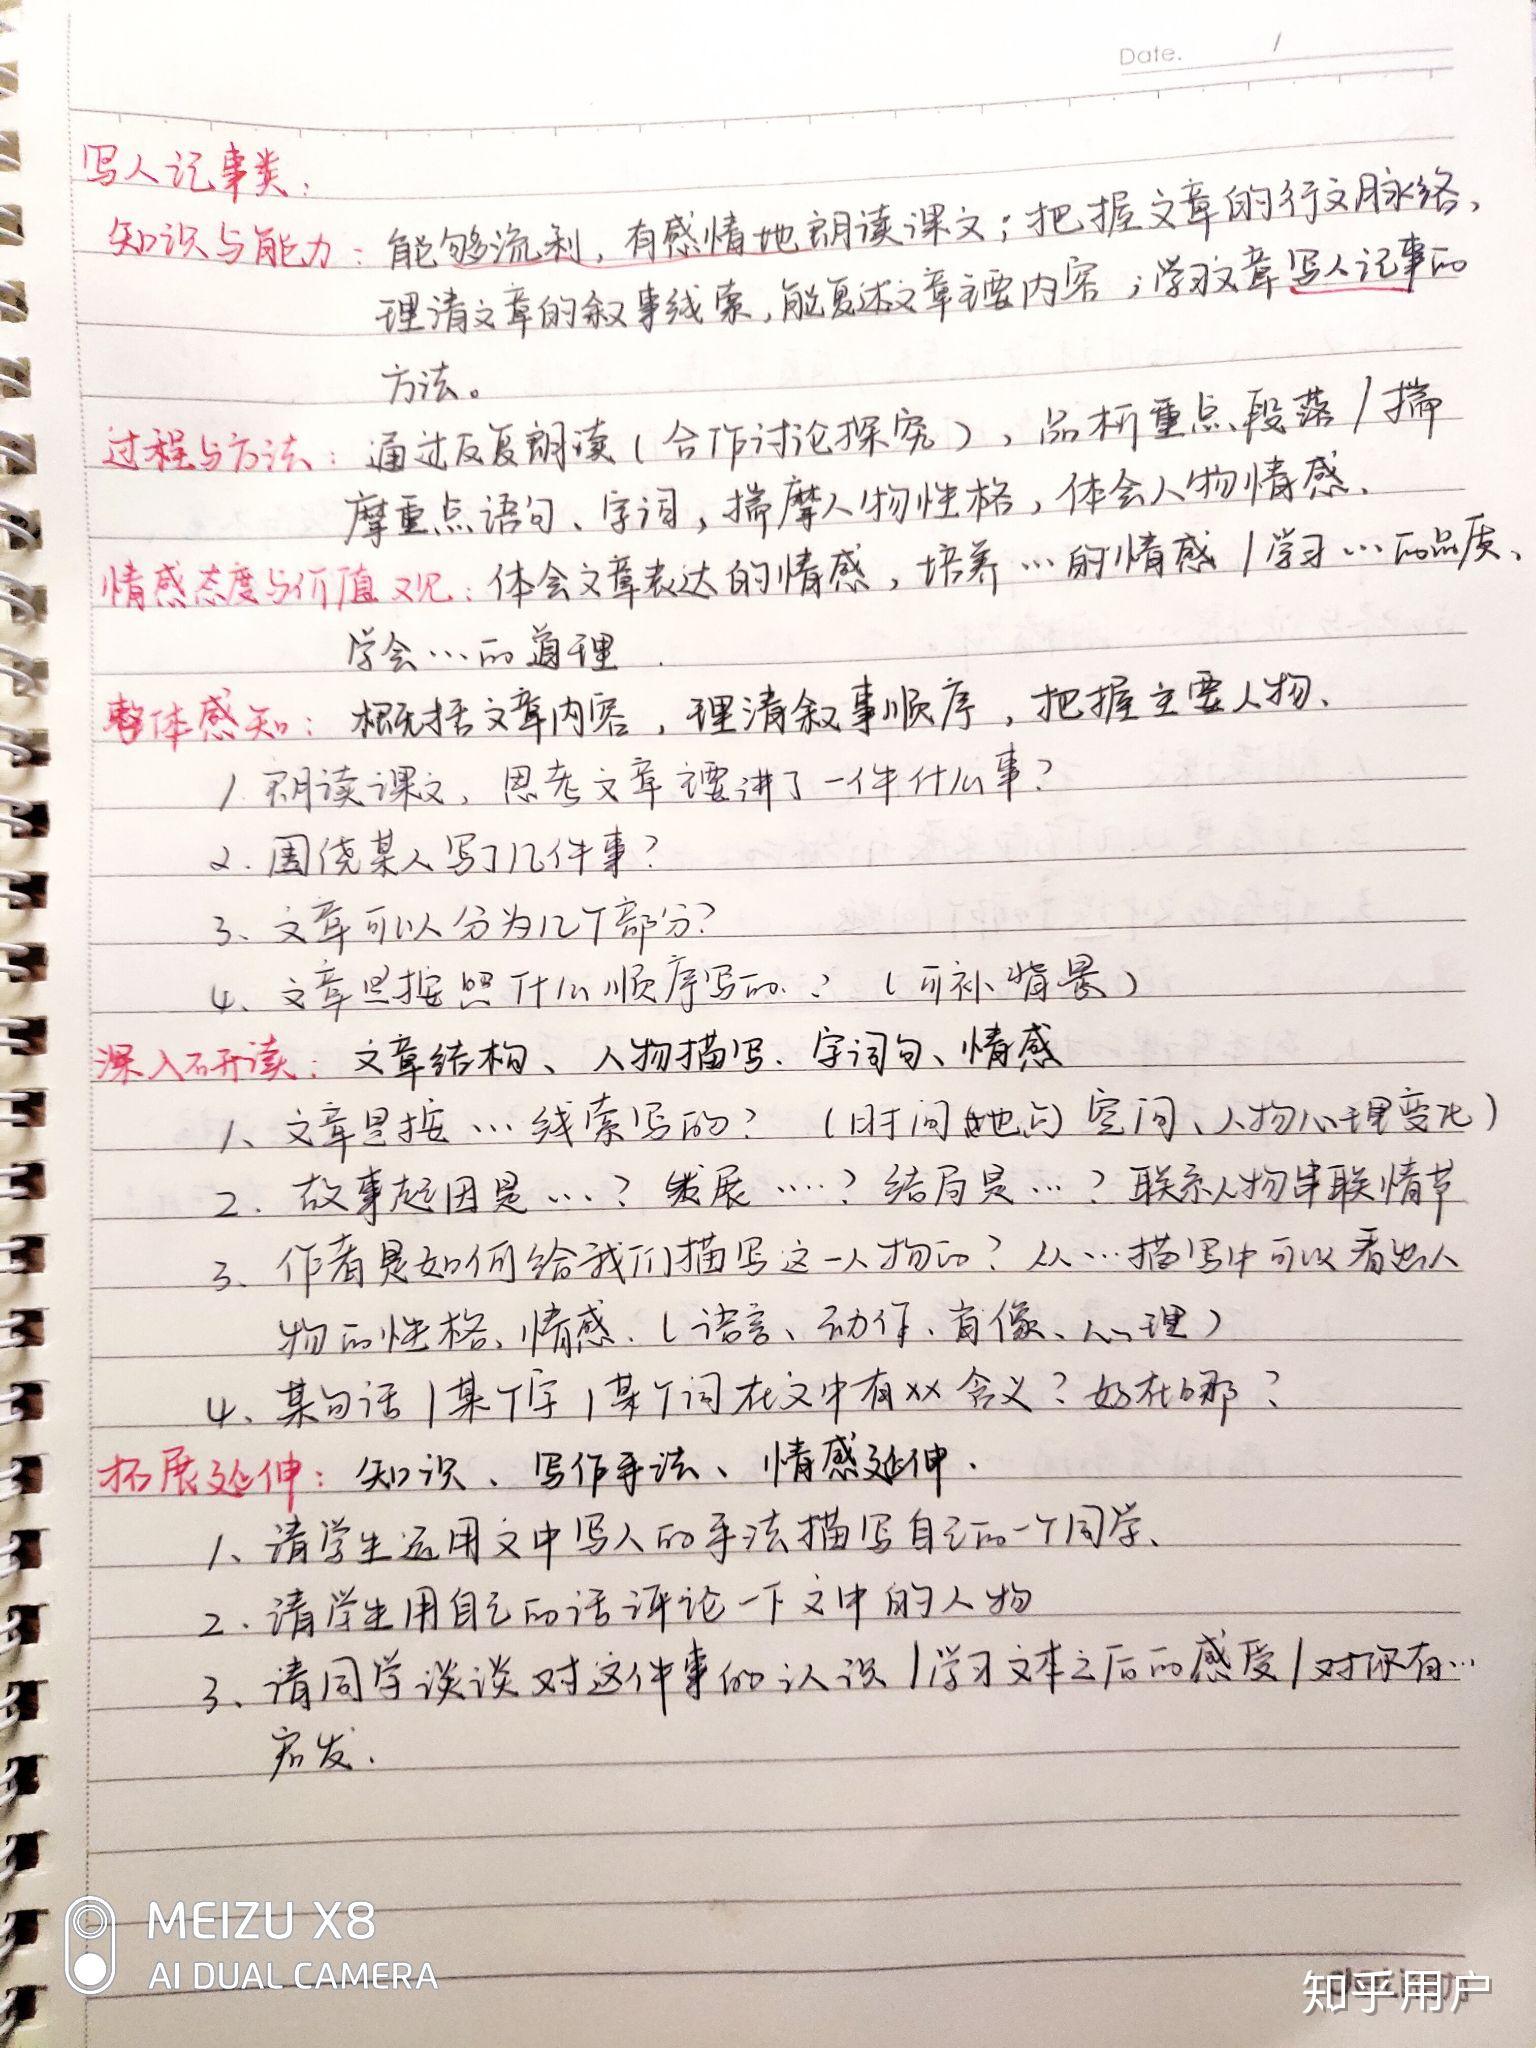 Date. /
写人记事类：
知识与能力：能够流利，有感情地朗读课文；把握文章的行文脉络、
理清文章的叙事线索，能复述文章主要内容；学习文章写人记事的
方法。
过程与方法：通过反复朗读（合作讨论探究）、品析重点段落/揣
摩重点语句、字词，揣摩人物性格，体会人物情感.
情感态度与价值观：体会文章表达的情感，培养…的情感/学习…的品质、
学会…的道理.
整体感知：概括文章内容，理清叙事顺序，把握主要人物.
1.朗读课文，思考文章主要讲了一件什么事？
2.围绕某人写了几件事？
3、文章可以分为几个部分？
4、文章是按照什么顺序写的？（可补背景）
深入研读：文章结构、人物描写、字词句、情感
1、文章是按…线索写的？（时间 地点 空间、人物心理变化）
2、故事起因是…？发展…？结局是…？联系人物串联情节
3、作者是如何给我们描写这一人物的？从…描写中可以看出人
物的性格、情感.（语言、动作、肖像、心理）
4、某句话/某个字/某个词在文中有xx含义？好在哪？
拓展延伸：知识、写作手法、情感延伸.
1、请学生运用文中写人的手法描写自己的一个同学、
2、请学生用自己的话评论一下文中的人物
3、请同学谈谈对这件事的认识/学习文本之后的感受/对你有…
启发.
MEIZU X8
AI DUAL CAMERA
知乎用户